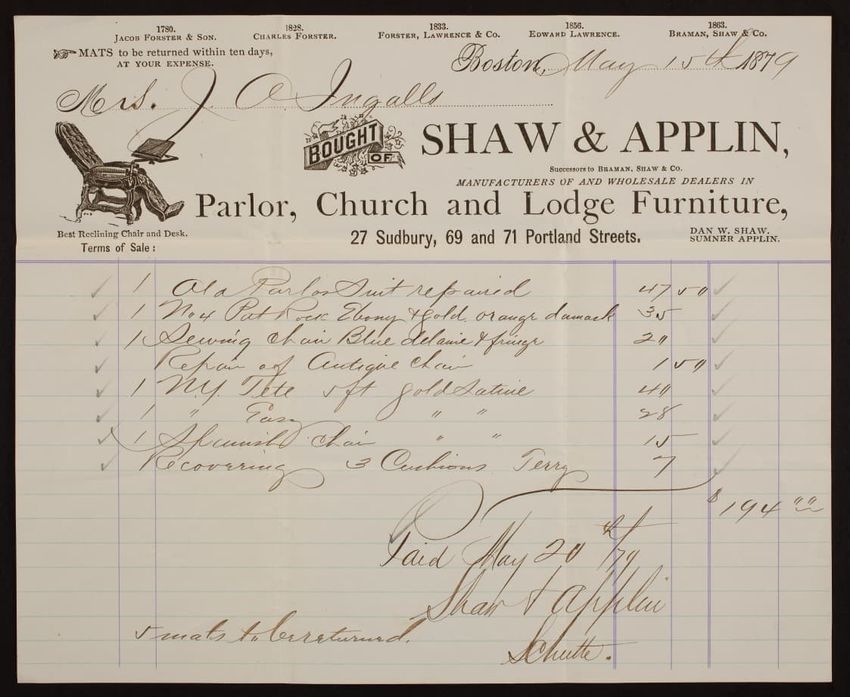 1780.
JACOB FORSTER & SON.
1828.
CHARLES FORSTER.
1833.
FORSTER, LAWRENCE & CO.
1856.
EDWARD LAWRENCE.
1863.
BRAMAN, SHAW & CO.
MATS to be returned within ten days,
AT YOUR EXPENSE.
Boston, May 15th 1879
Mrs. J A Ingalls
BOUGHT OF
SHAW & APPLIN,
Successors to BRAMAN, SHAW & CO.
MANUFACTURERS OF AND WHOLESALE DEALERS IN
Parlor, Church and Lodge Furniture,
Best Reclining Chair and Desk.
27 Sudbury, 69 and 71 Portland Streets.
DAN W. SHAW.
SUMNER APPLIN.
Terms of Sale:
1 Old Parlor Suit repaired 47 50
1 No 4 Pat Rock Ebony & gold orange damask 35
1 Sewing chair Blue delaine & fringe 20
Repair of Antique chair 1 50
1 N.Y. Tete 5 ft gold Satine 40
1 " Easy " " 28
1 Spanish Chair " " 15
Recovering 3 Cushions Terry 7
$194 00
Paid May 20th/79
Shaw & Applin
5 mats to be returned.
Schutte.